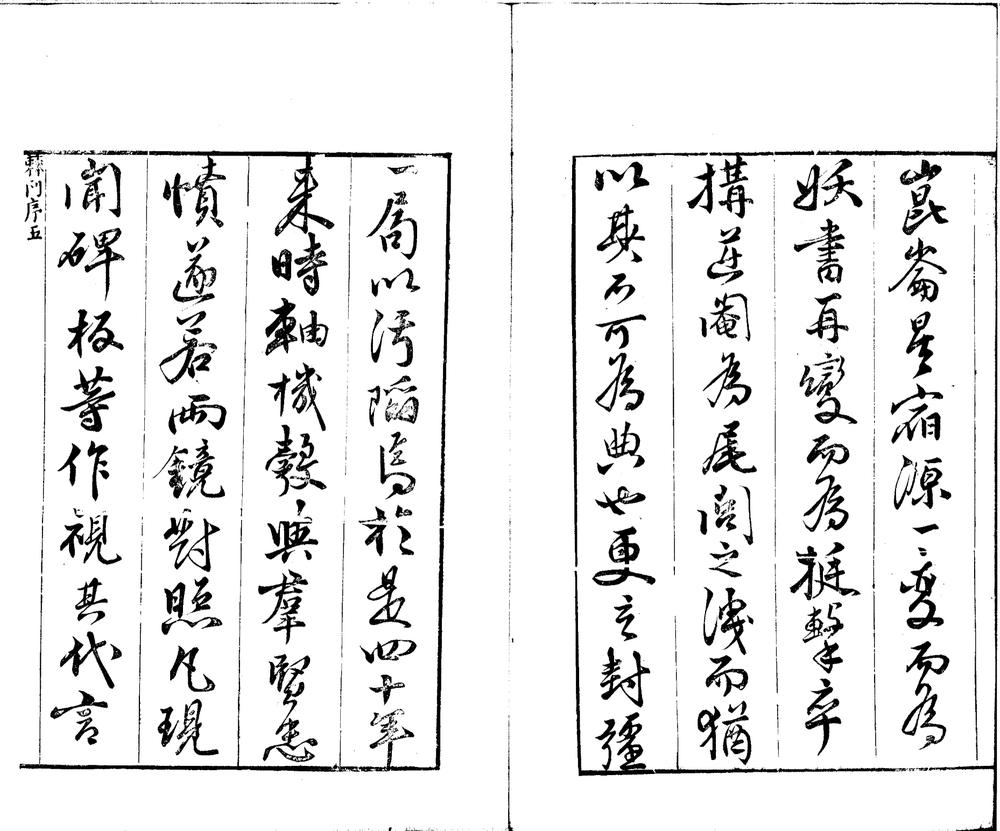 崑崙星宿源一變而為
妖書再變而為梃擊卒
搆逆閹為尾閭之洩而猶
以其不可為典也更立封疆
一局以汚陷焉於是四十年
來時軸機彀與羣賢恚
憤遂若兩鏡對照凡現
聞碑板等作視其代言
序五